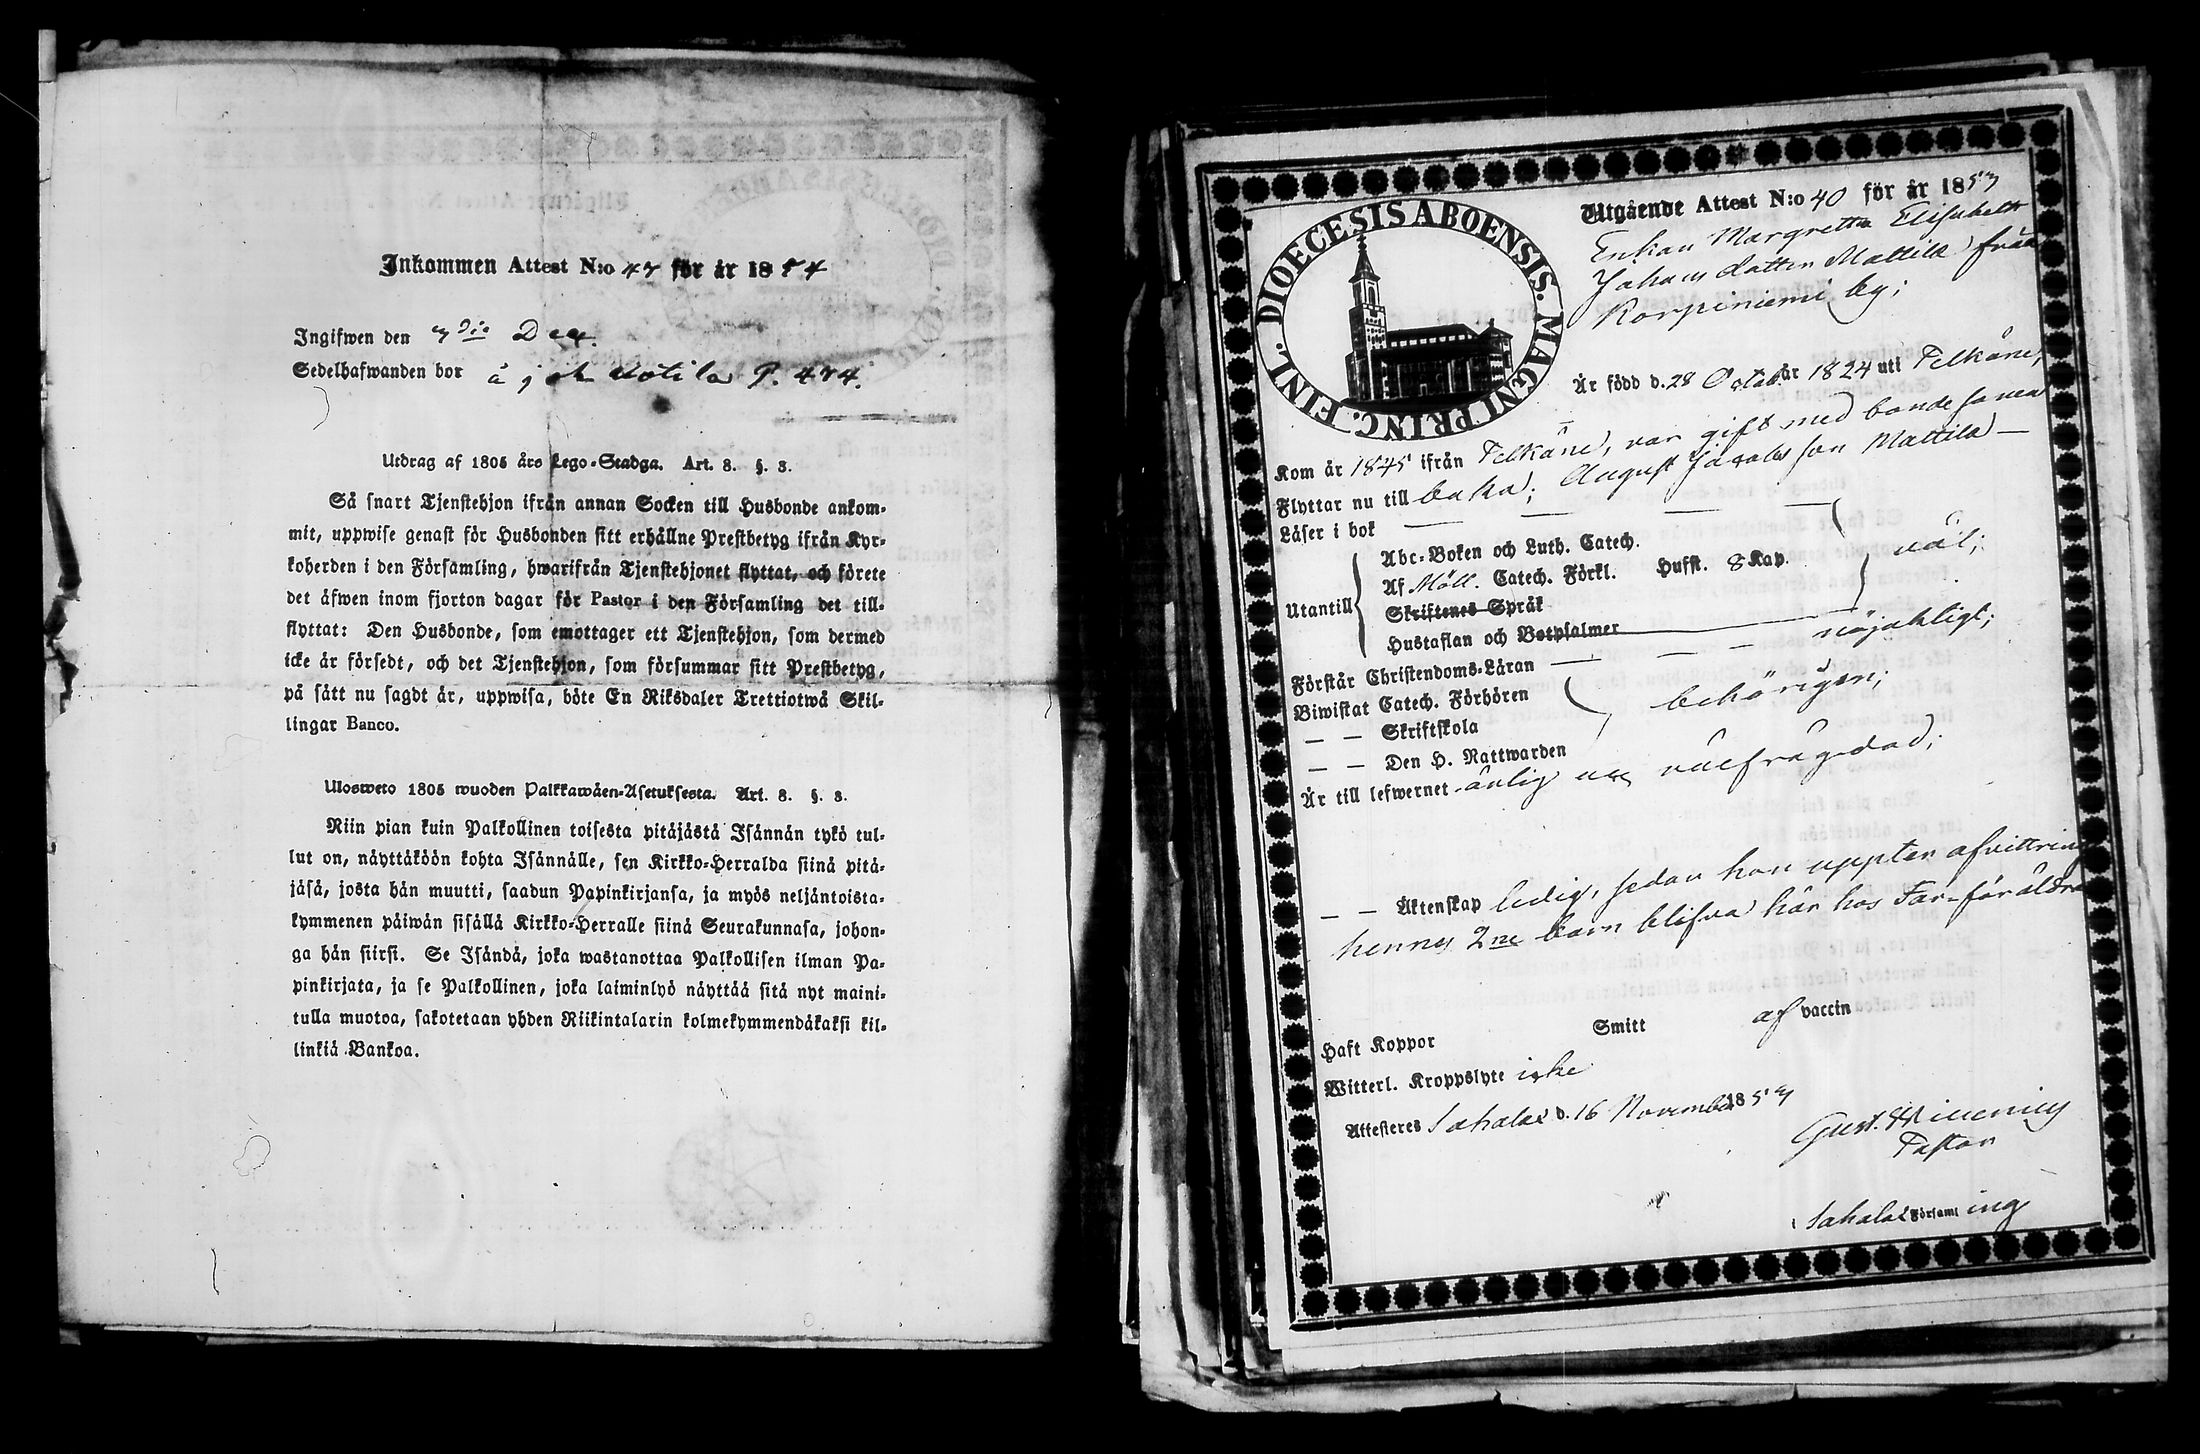 Inkommen Attest N:o 47 för år 1854
Ingifwen den 7die Dec.
Sedelhafwanden bor å P. 474.
Utdrag af 1805 års Lego-Stadga. Art. 8. §. 3.
Så snart Tjenstehjon ifrån annan Socken till Husbonde ankom-
mit, uppwise genast för Husbonden sitt erhållne Prestbetyg ifrån Kyr-
koherden i den Församling, hwarifrån Tjenstehjonet flyttat, och förete
det äfwen inom fjorton dagar för Pastor i den Församling det till-
flyttat: Den Husbonde, som emottager ett Tjenstehjon, som dermed
icke är försedt, och det Tjenstehjon, som försummar sitt Prestbetyg,
på sätt nu sagdt är, uppwisa, böte En Riksdaler Trettiotwå Skil-
lingar Banco.
Ulosweto 1805 wuoden Palkkawäen-Asetuksesta. Art. 8. §. 3.
Niin pian kuin Palkollinen toisesta pitäjästä Isännän tykö tul-
lut on, näyttäköön kohta Isännälle, sen Kirkko-Herralda siinä pitä-
jäsä, josta hän muutti, saadun Papinkirjansa, ja myös neljäntoista-
kymmenen päiwän sisällä Kirkko-Herralle siinä Seurakunnasa, johon-
ga hän siirsi. Se Isändä, joka wastanottaa Palkollisen ilman Pa-
pinkirjata, ja se Palkollinen, joka laiminlyö näyttää sitä nyt maini-
tulla muotoa, sakotetaan yhden Riikintalarin kolmekymmendäkaksi kil-
linkiä Bankoa.
DIOECESIS ABOENSIS. MAGNI PRINC. FINL.
Utgående Attest N:o 40 för år 1853
Enkan Margretta Elisabeth
Johans dotter Mattila från
Korpiniemi by;
Är född d. 28 Octob. år 1824 uti Pelkäne,
Kom år 1845 ifrån Pelkäne, var gift med bondesonen
Flyttar nu till baka; August Jacobs son Mattila
Läser i bok
Utantill
Abc-Boken och Luth. Catech.
Af Möll. Catech. Förkl. Hufst. 8 Kap. väl;
Skriftenes Språk
Hustaflan och Botpsalmer
Förstår Christendoms-Läran nöjaktigt;
Biwistat Catech. Förhören
— — Skriftskola behörigen;
— — Den H. Nattwarden
Är till lefwernet ärlig och välfrägdad;
— — Äktenskap ledig, sedan hon uppter afvittring
hennes 2ne barn blifva här hos Far-föräldra
Haft Koppor Smitt af vaccin
Witterl. Kroppslyte icke
Attesteras Sahalax d. 16 November 1853
Gust.
Pastor
i Sahalax Församling